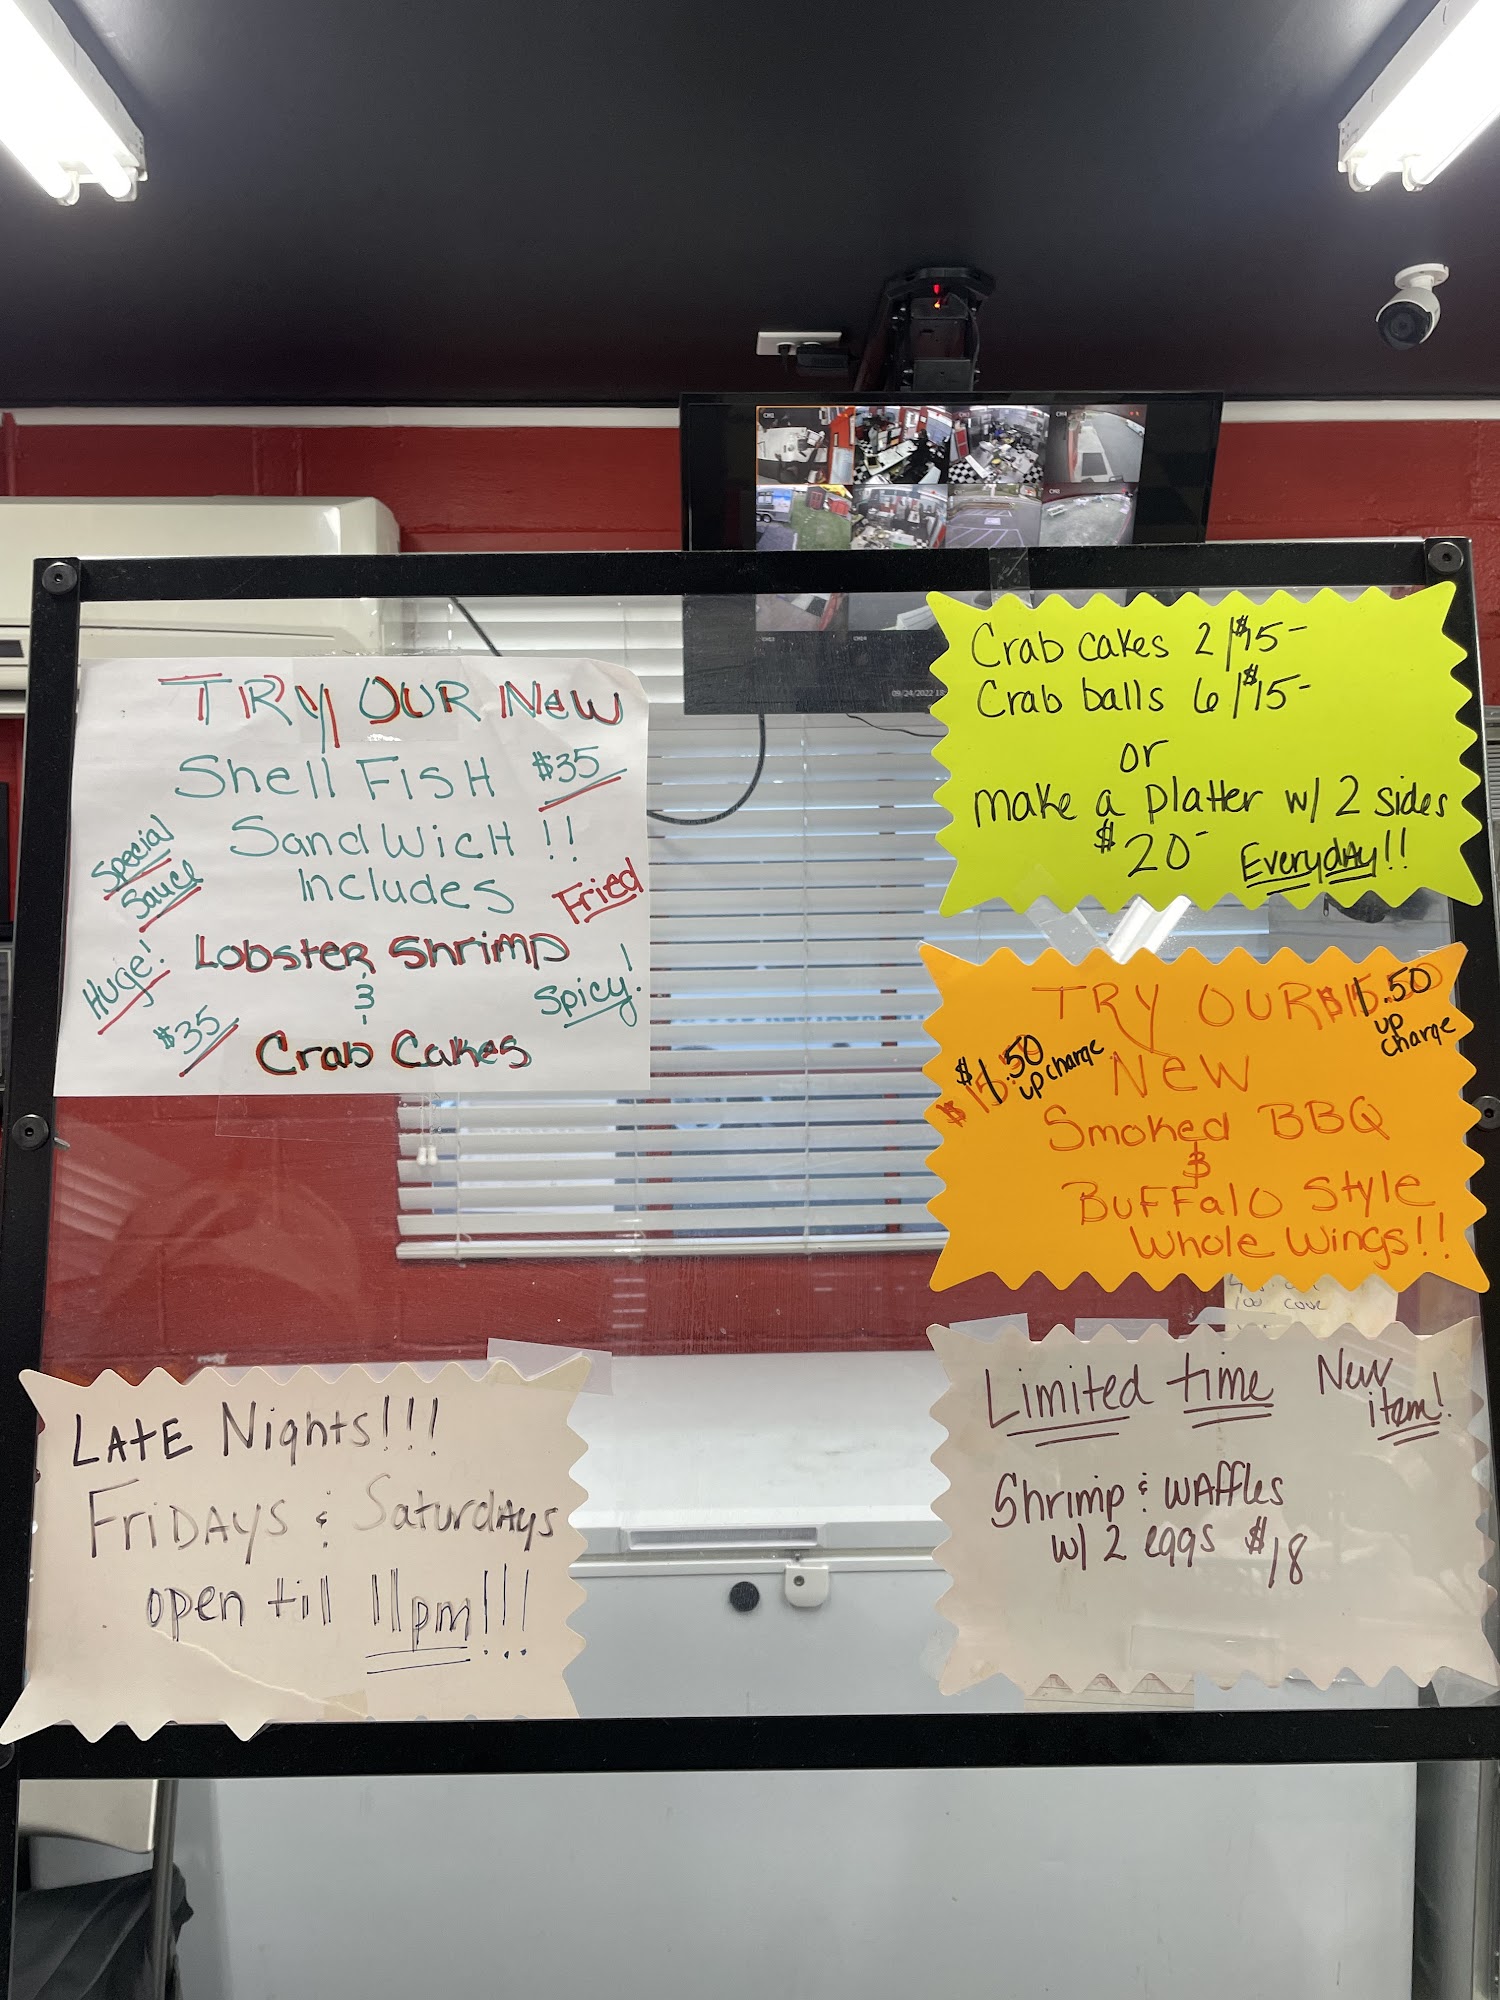 TRY OUR New
Shell FisH $35
SandWicH !!
Includes
Special
Sauce
Fried
Lobster Shrimp
&
Huge!
Spicy!
$35
Crab Cakes
Crab cakes 2/$15-
Crab balls 6/$15-
or
make a platter w/ 2 sides
$20- EverydAy!!
TRY OUR
$1.50
up
charge
$1.50
upcharge
New
Smoked BBQ
&
BuFFalo Style
Whole Wings!!
LAtE Nights!!!
FriDAYs & SaturdAys
open till 11pm!!!
Limited time New
item!
Shrimp & wAffles
w/ 2 eggs $18
CH1
09/24/2022